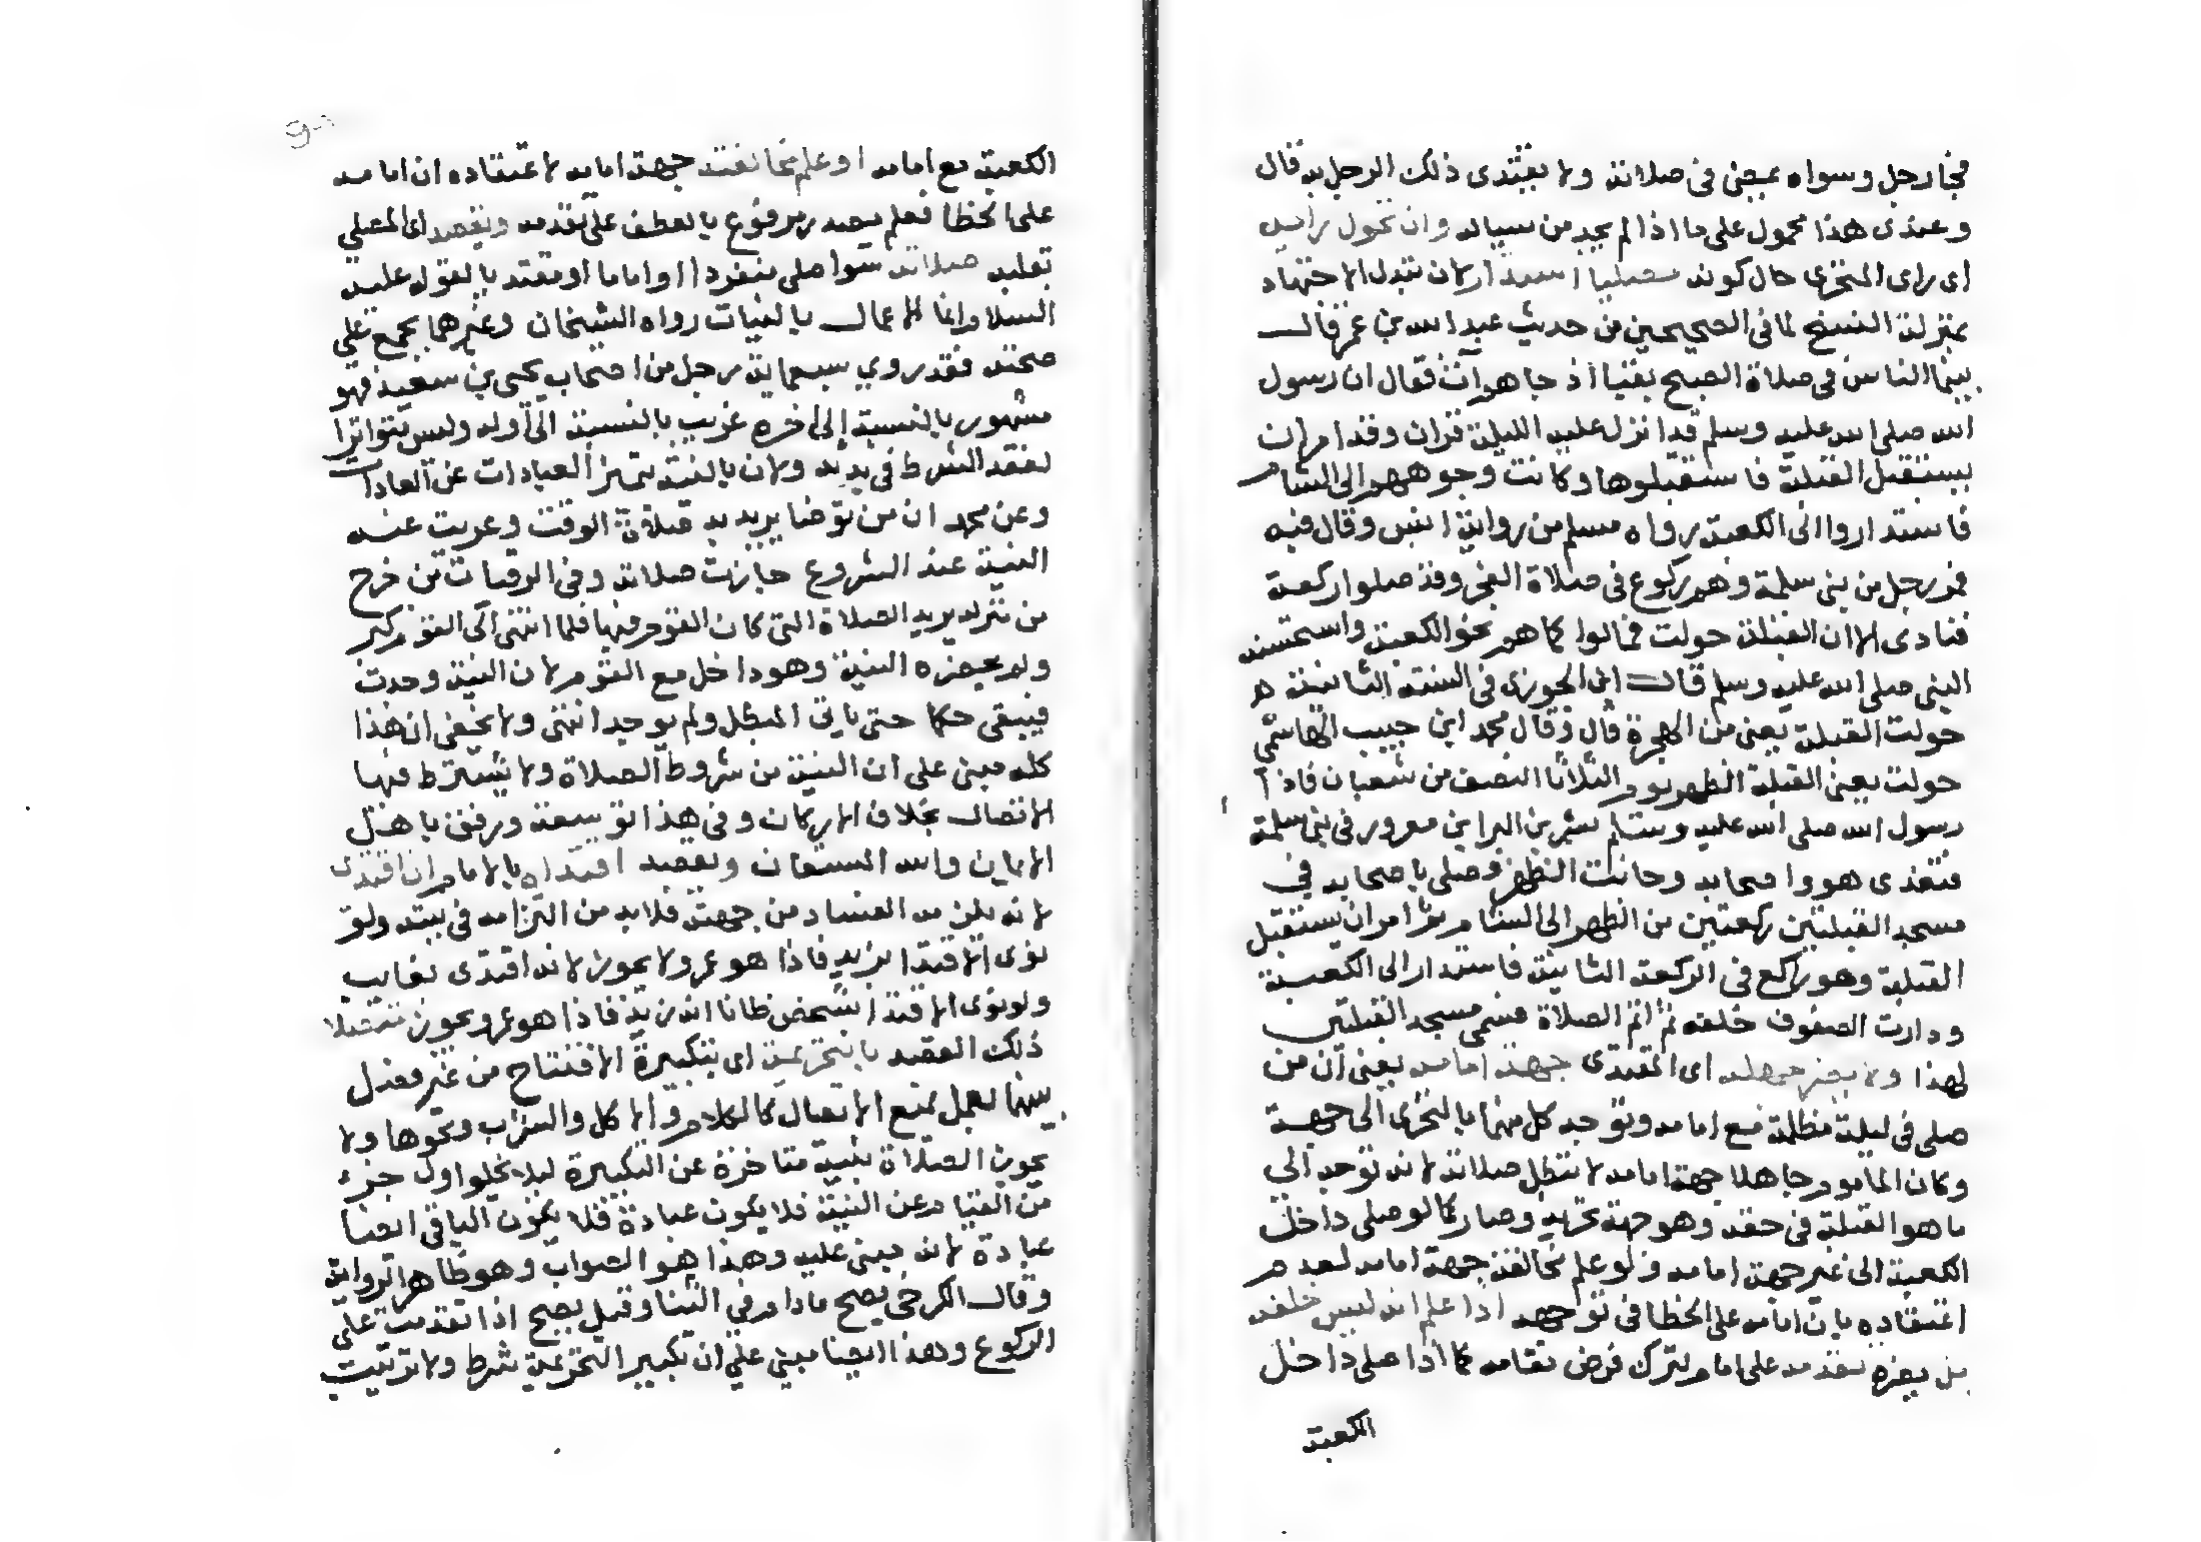 فجا رجل وسواه يمضى فى صلاته ولا يقتدى ذلك الرجل به قال
وعندى هذا محمول على ما اذا لم يجد من يساله وان تحول رايه
اى راى المتحرى حال كونه مصليا استدار لان تبدل الاجتهاد
بمنزلة النسخ لما فى الصحيحين من حديث عبد الله بن عمر قال
بينما الناس فى صلاة الصبح بقبا اذ جاهم آت فقال ان رسول
الله صلى الله عليه وسلم قد انزل عليه الليلة قران وقد امر ان
يستقبل القبلة فاستقبلوها وكانت وجوههم الى الشام
فاستداروا الى الكعبة رواه مسلم من رواية انس وقال فيه
فمر رجل من بنى سلمة وهم ركوع فى صلاة الفجر وقد صلوا ركعة
فنادى الا ان القبلة حولت فمالوا كما هم نحو الكعبة واستحسنه
النبى صلى الله عليه وسلم قال ابن الجوزى فى السنة الثانية هـ
حولت القبلة يعنى من الهجرة قال وقال محمد ابن حبيب الهاشمى
حولت يعنى القبلة الظهر يوم الثلاثا النصف من شعبان فاذا
رسول الله صلى الله عليه وسلم بشر بن البرا بن معرور فى بنى سلمة
فتغدى هو واصحابه وحانت الظهر فصلى باصحابه في
مسجد القبلتين ركعتين من الظهر الى الشام ثم امر ان يستقبل
القبلة وهو راكع فى الركعة الثانية فاستدار الى الكعبة
ودارت الصفوف خلفه ثم اتم الصلاة فسمى مسجد القبلتين
لهذا ولا يضر جهله اى المقتدى جهة امامه يعنى ان من
صلى فى ليلة مظلمة مع امامه وتوجه كل منهما بالتحرى الى جهة
وكان الماموم جاهلا جهة امامه لا تبطل صلاته لانه توجه الي
ما هو القبلة فى حقه وهو جهة تحريه وصار كما لو صلى داخل
الكعبة الى غير جهة امامه ولو علم مخالفة جهة امامه لعدم
اعتقاده بان امامه على الخطا فى توجهه اذا علم انه ليس خلفه
بل يضره تقدمه على امام لترك فرض مقامه كما اذا صلى داخل
الكعبة
الكعبة مع امامه او علم مخالفته جهة امامه لاعتقاده ان امامه
على الخطا فعلم مصدر مرفوع بالعطف على تقدمه ويقصد اى المصلي
بقلبه صلاته سوا صلى منفردا او اماما او مقتد بالقوله عليه
السلام انما الاعمال بالنيات رواه الشيخان وغيرهما مجمع علي
صحته فقد روي سبعماية رجل من اصحاب يحيى بن سعيد فهو
مشهور بالنسبة الى اخره غريب بالنسبة الى اوله وليس بمتواترا
لفقد الشرط فى بديه ولان بالنية تتميز العبادات عن العادات
وعن محمد ان من توضا يريد به صلاة الوقت وعريت عنه
النية عند الشروع جازت صلاته وفى الرقيات من خرج
من منزله يريد الصلاة التى كان القوم فيها فلما انتهى الى القوم كبر
ولم يحضره النية وهو داخل مع القوم لان النية وجدت
فيبقى حكما حتى ياتى المبطل ولم يوجد انتهى ولا يخفى ان هذا
كله مبنى على ان النية من شروط الصلاة ولا يشترط فيها
الاتصال بخلاف الاركان وفى هذا توسعة ورفق باهل
الايمان والله المستعان ويقصد اقتداه بالامام ان اقتدى
لانه يلزمه الفساد من جهته فلا بد من التزامه فى نيته ولو
نوى الاقتدا بزيد فاذا هو عمرو لا يجوز لانه اقتدى بغايب
ولو نوى الاقتدا بشخص ظانا انه زيد فاذا هو عمرو يجوز متصلا
ذلك القصد بالتحريمة اى بتكبيرة الافتتاح من غير فصل
بينهما بعمل يمنع الاتصال كالكلام والاكل والشرب ونحوها ولا
يجوز الصلاة بنية متاخرة عن التكبيرة ليلا يخلوا اول جزء
من القيام عن النية فلا يكون عبادة فلا يكون الباقى ايضا
عبادة لانه مبنى عليه وهذا هو الصواب وهو ظاهر الرواية
وقال الكرخى يصح ما دام فى الثنا وقيل يصح اذا تقدمت على
الركوع وهذا ايضا مبني على ان تكبير التحريمة شرط ولا ترتيب